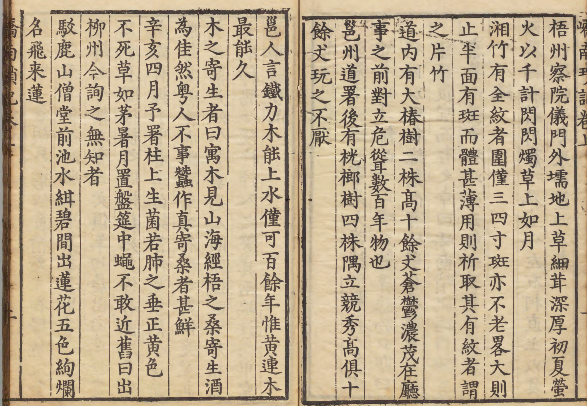 梧州察院儀門外壖地上草細茸深厚初夏螢
火以千計閃閃燭草上如月
湘竹有全紋者圍僅三四寸斑亦不老畧大則
止半面有斑而體甚薄用則析取其有紋者謂
之片竹
道内有大椿樹二株髙十餘丈蒼鬱濃茂在廳
事之前對立危聳數百年物也
邕州道署後有桄榔樹四株隅立競秀髙俱十
餘丈玩之不厭
邕人言鐵力木能上水僅可百餘年惟黄連木
最能久
木之寄生者曰寓木見山海經梧之桑寄生酒
為佳然粤人不事蠶作真寄桑者甚鮮
辛亥四月予署柱上生菌若肺之垂正黄色
不死草如茅暑月置盤筵中蠅不敢近舊曰出
柳州今詢之無知者
駁鹿山僧堂前池水紺碧間出蓮花五色絢爛
名飛来蓮